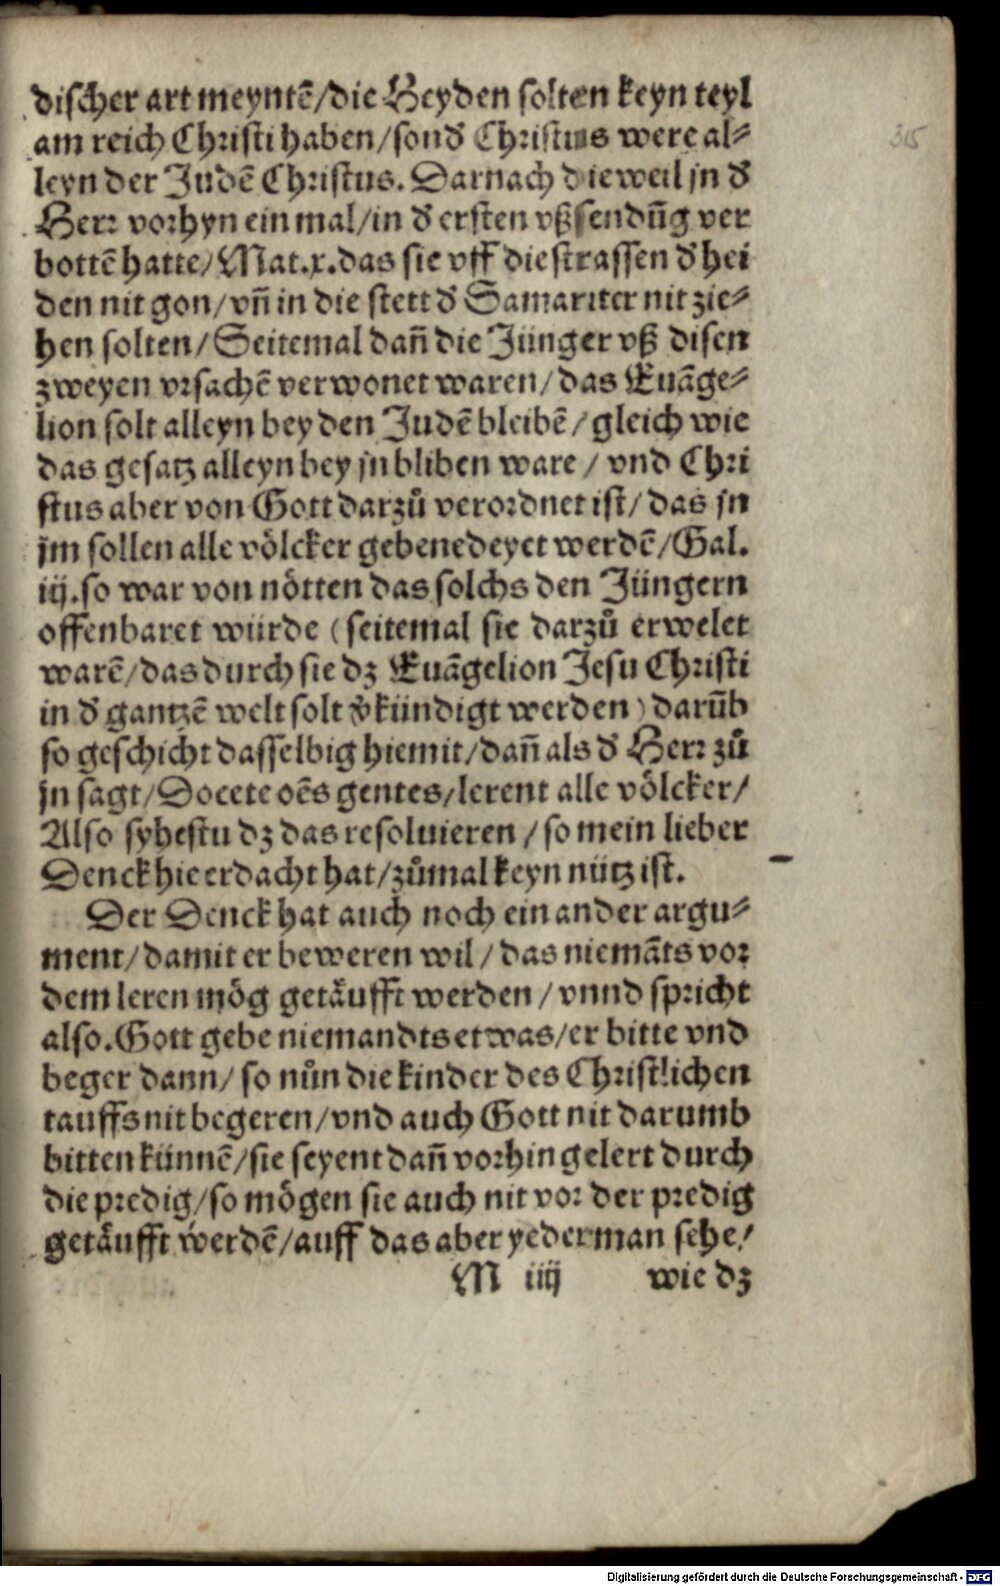 discher art meyntē/die Heyden solten keyn teyl
am reich Christi haben/sond̄ Christus were al⸗
leyn der Judē Christus. Darnach dieweil jn d̄
Herr vorhyn ein mal/in d̄ ersten vßsendūg ver
bottē hatte/Mat.x.das sie vff die strassen d̄ hei
den nit gon/vn̄ in die stett d̄ Samariter nit zie⸗
hen solten/Seitemal dan̄ die Jünger vß disen
zweyen vrsachē verwonet waren/das Euāge⸗
lion solt alleyn bey den Judē bleibē/gleich wie
das gesatz alleyn bey jn bliben ware/vnd Chri
stus aber von Gott darzů verordnet ist/das jn
jm sollen alle völcker gebenedeyet werdē/Gal.
iij.so war von nötten das solchs den Jüngern
offenbaret würde (seitemal sie darzů erwelet
warē/das durch sie dz Euāgelion Jesu Christi
in d̄ gantzē welt solt v̄kündigt werden) darūb
so geschicht dasselbig hiemit/dan̄ als d̄ Herr zů
jn sagt/Docete oēs gentes/lerent alle völcker/
Also syhestu dz das resoluieren/so mein lieber
Denck hie erdacht hat/zůmal keyn nütz ist.
Der Denck hat auch noch ein ander argu⸗
ment/damit er beweren wil/das niemāts vor
dem leren mög getäufft werden/vnnd spricht
also.Gott gebe niemandts etwas/er bitte vnd
beger dann/so nůn die kinder des Christlichen
tauffs nit begeren/vnd auch Gott nit darumb
bitten künnē/sie seyent dan̄ vorhin gelert durch
die predig/so mögen sie auch nit vor der predig
getäufft werdē/auff das aber yederman sehe/
M iiij wie dz
315
Digitalisierung gefördert durch die Deutsche Forschungsgemeinschaft - DFG